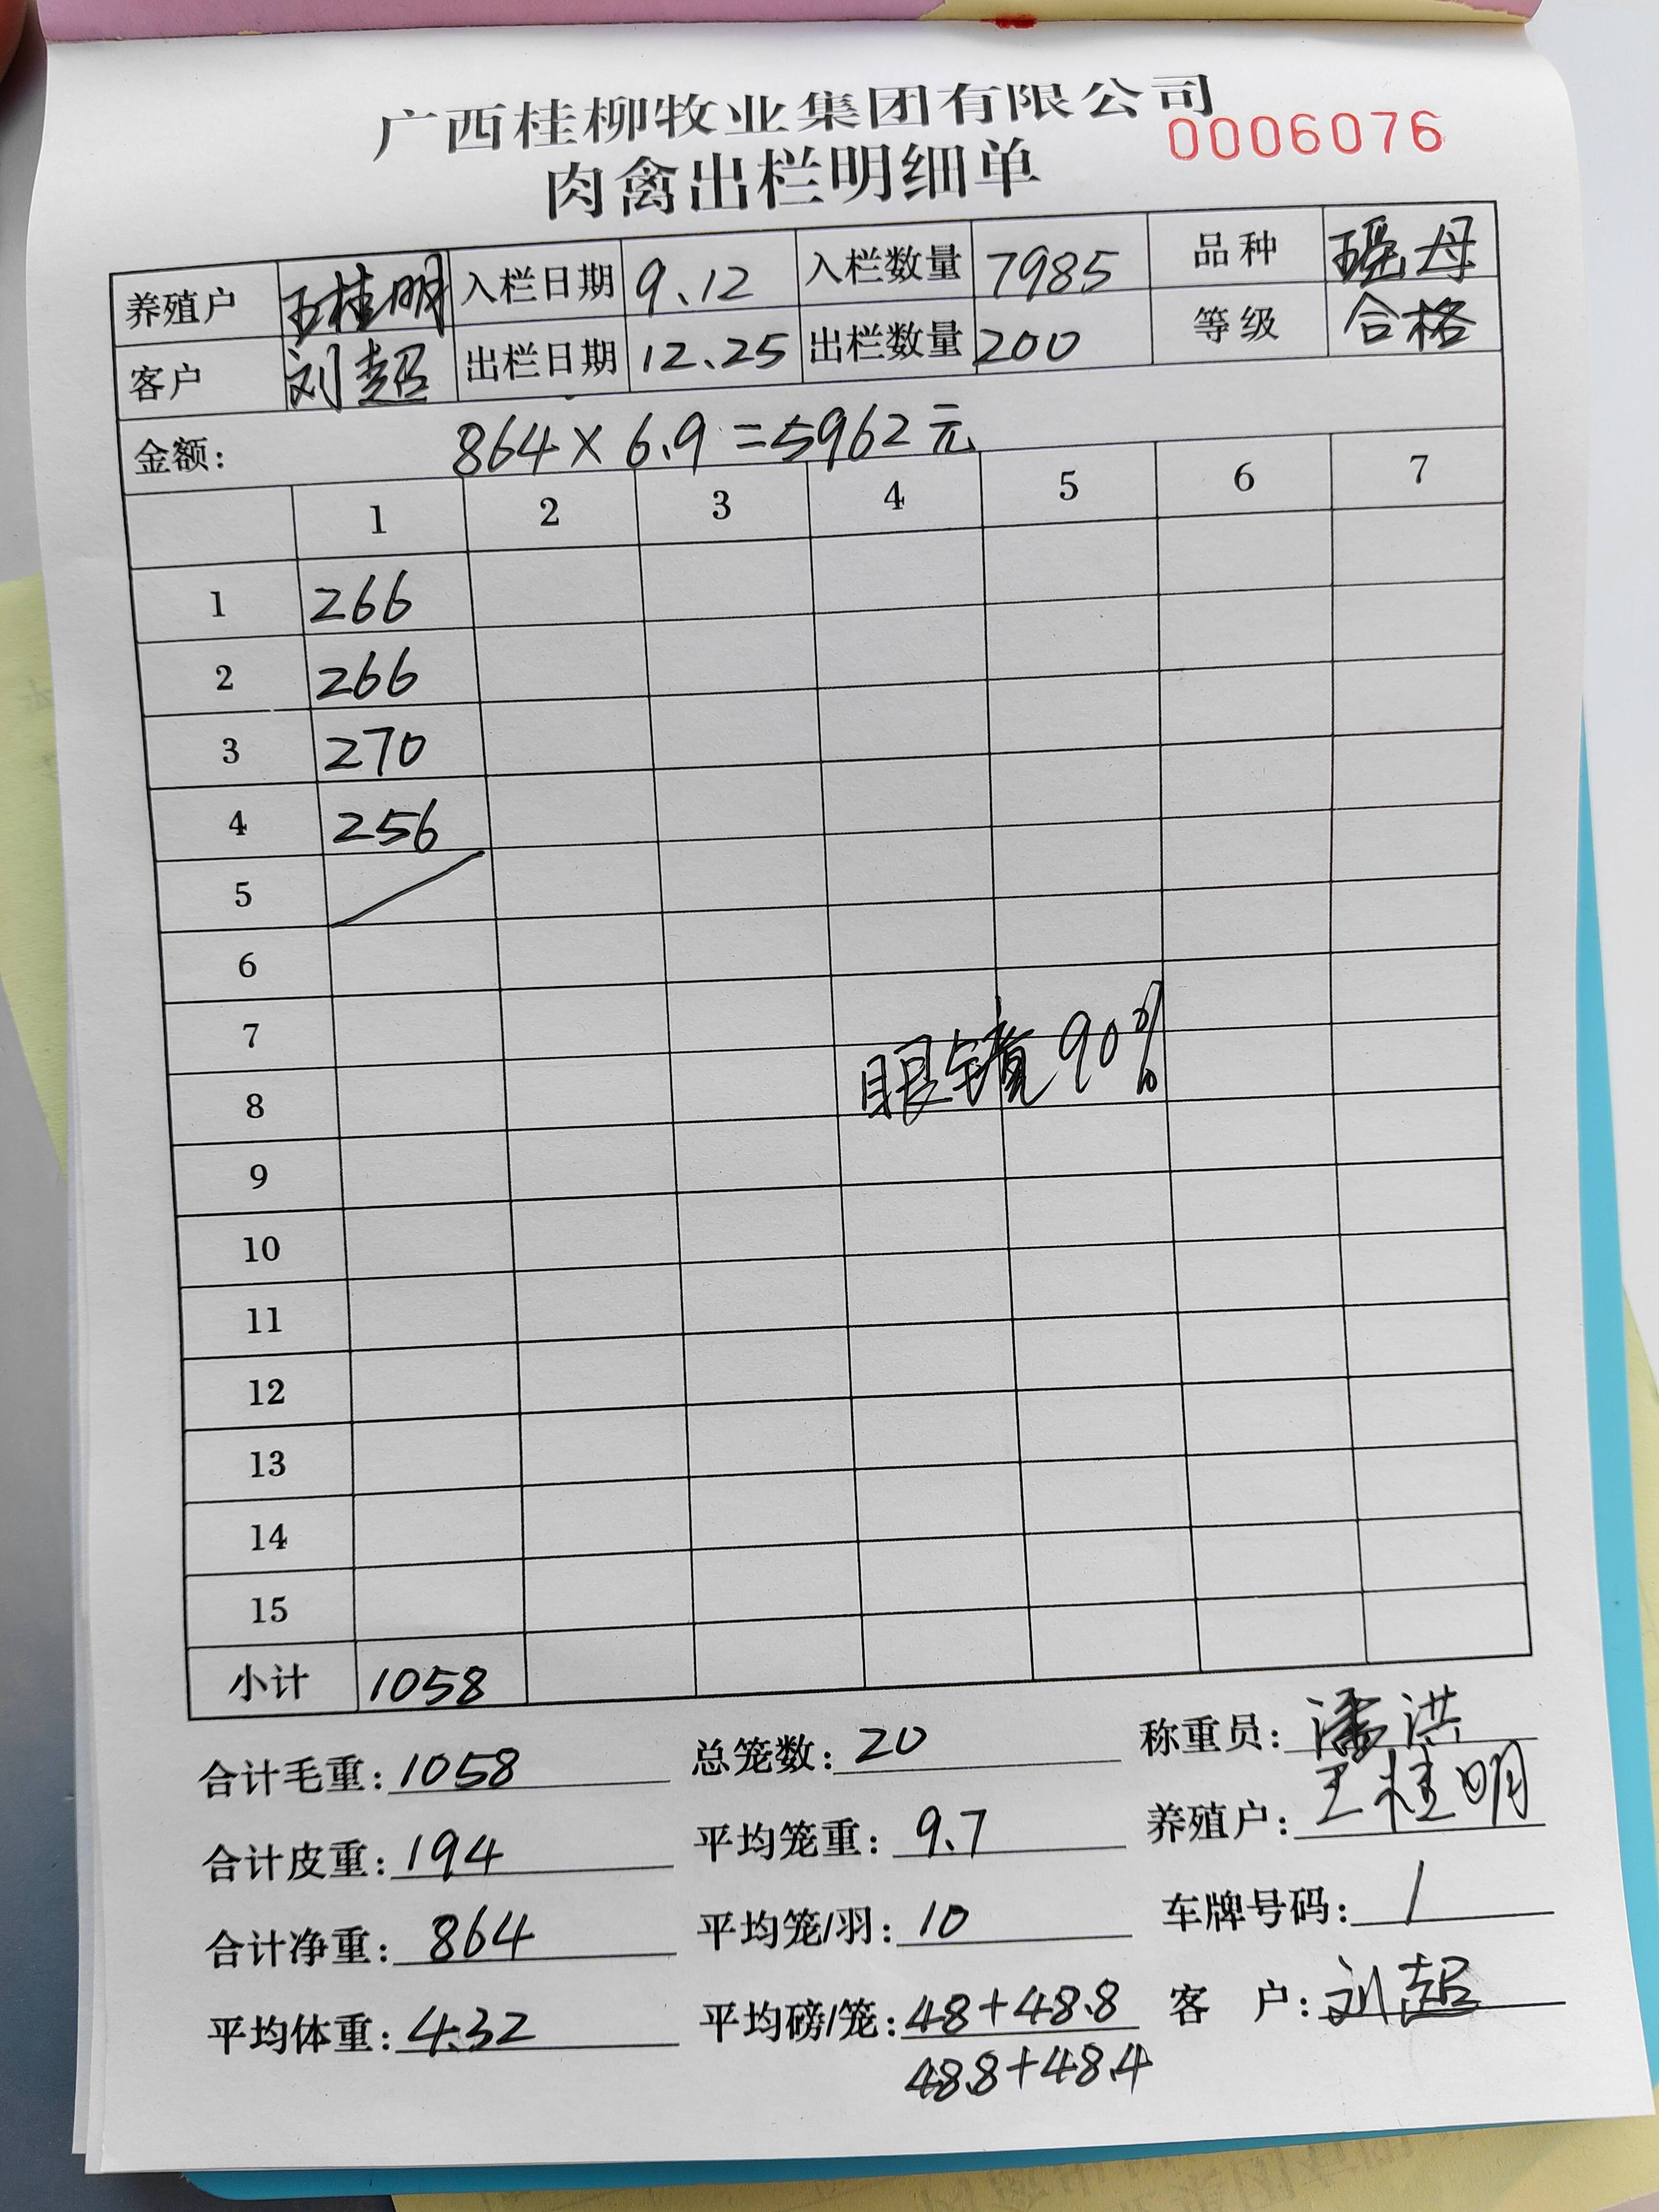 广西桂柳牧业集团有限公司
0006076
肉禽出栏明细单
养殖户 王桂明 入栏日期 9.12 入栏数量 7985 品种 瑶母
客户 刘超 出栏日期 12.25 出栏数量 200 等级 合格
金额: 864×6.9=5962元
1 2 3 4 5 6 7
1 266
2 266
3 270
4 256
5
6
7
眼镜90%
8
9
10
11
12
13
14
15
小计 1058
合计毛重: 1058 总笼数: 20 称重员: 潘洪
合计皮重: 194 平均笼重: 9.7 养殖户: 王桂明
合计净重: 864 平均笼/羽: 10 车牌号码: /
平均体重: 4.32 平均磅/笼: 48+48.8 客 户: 刘超
48.8+48.4